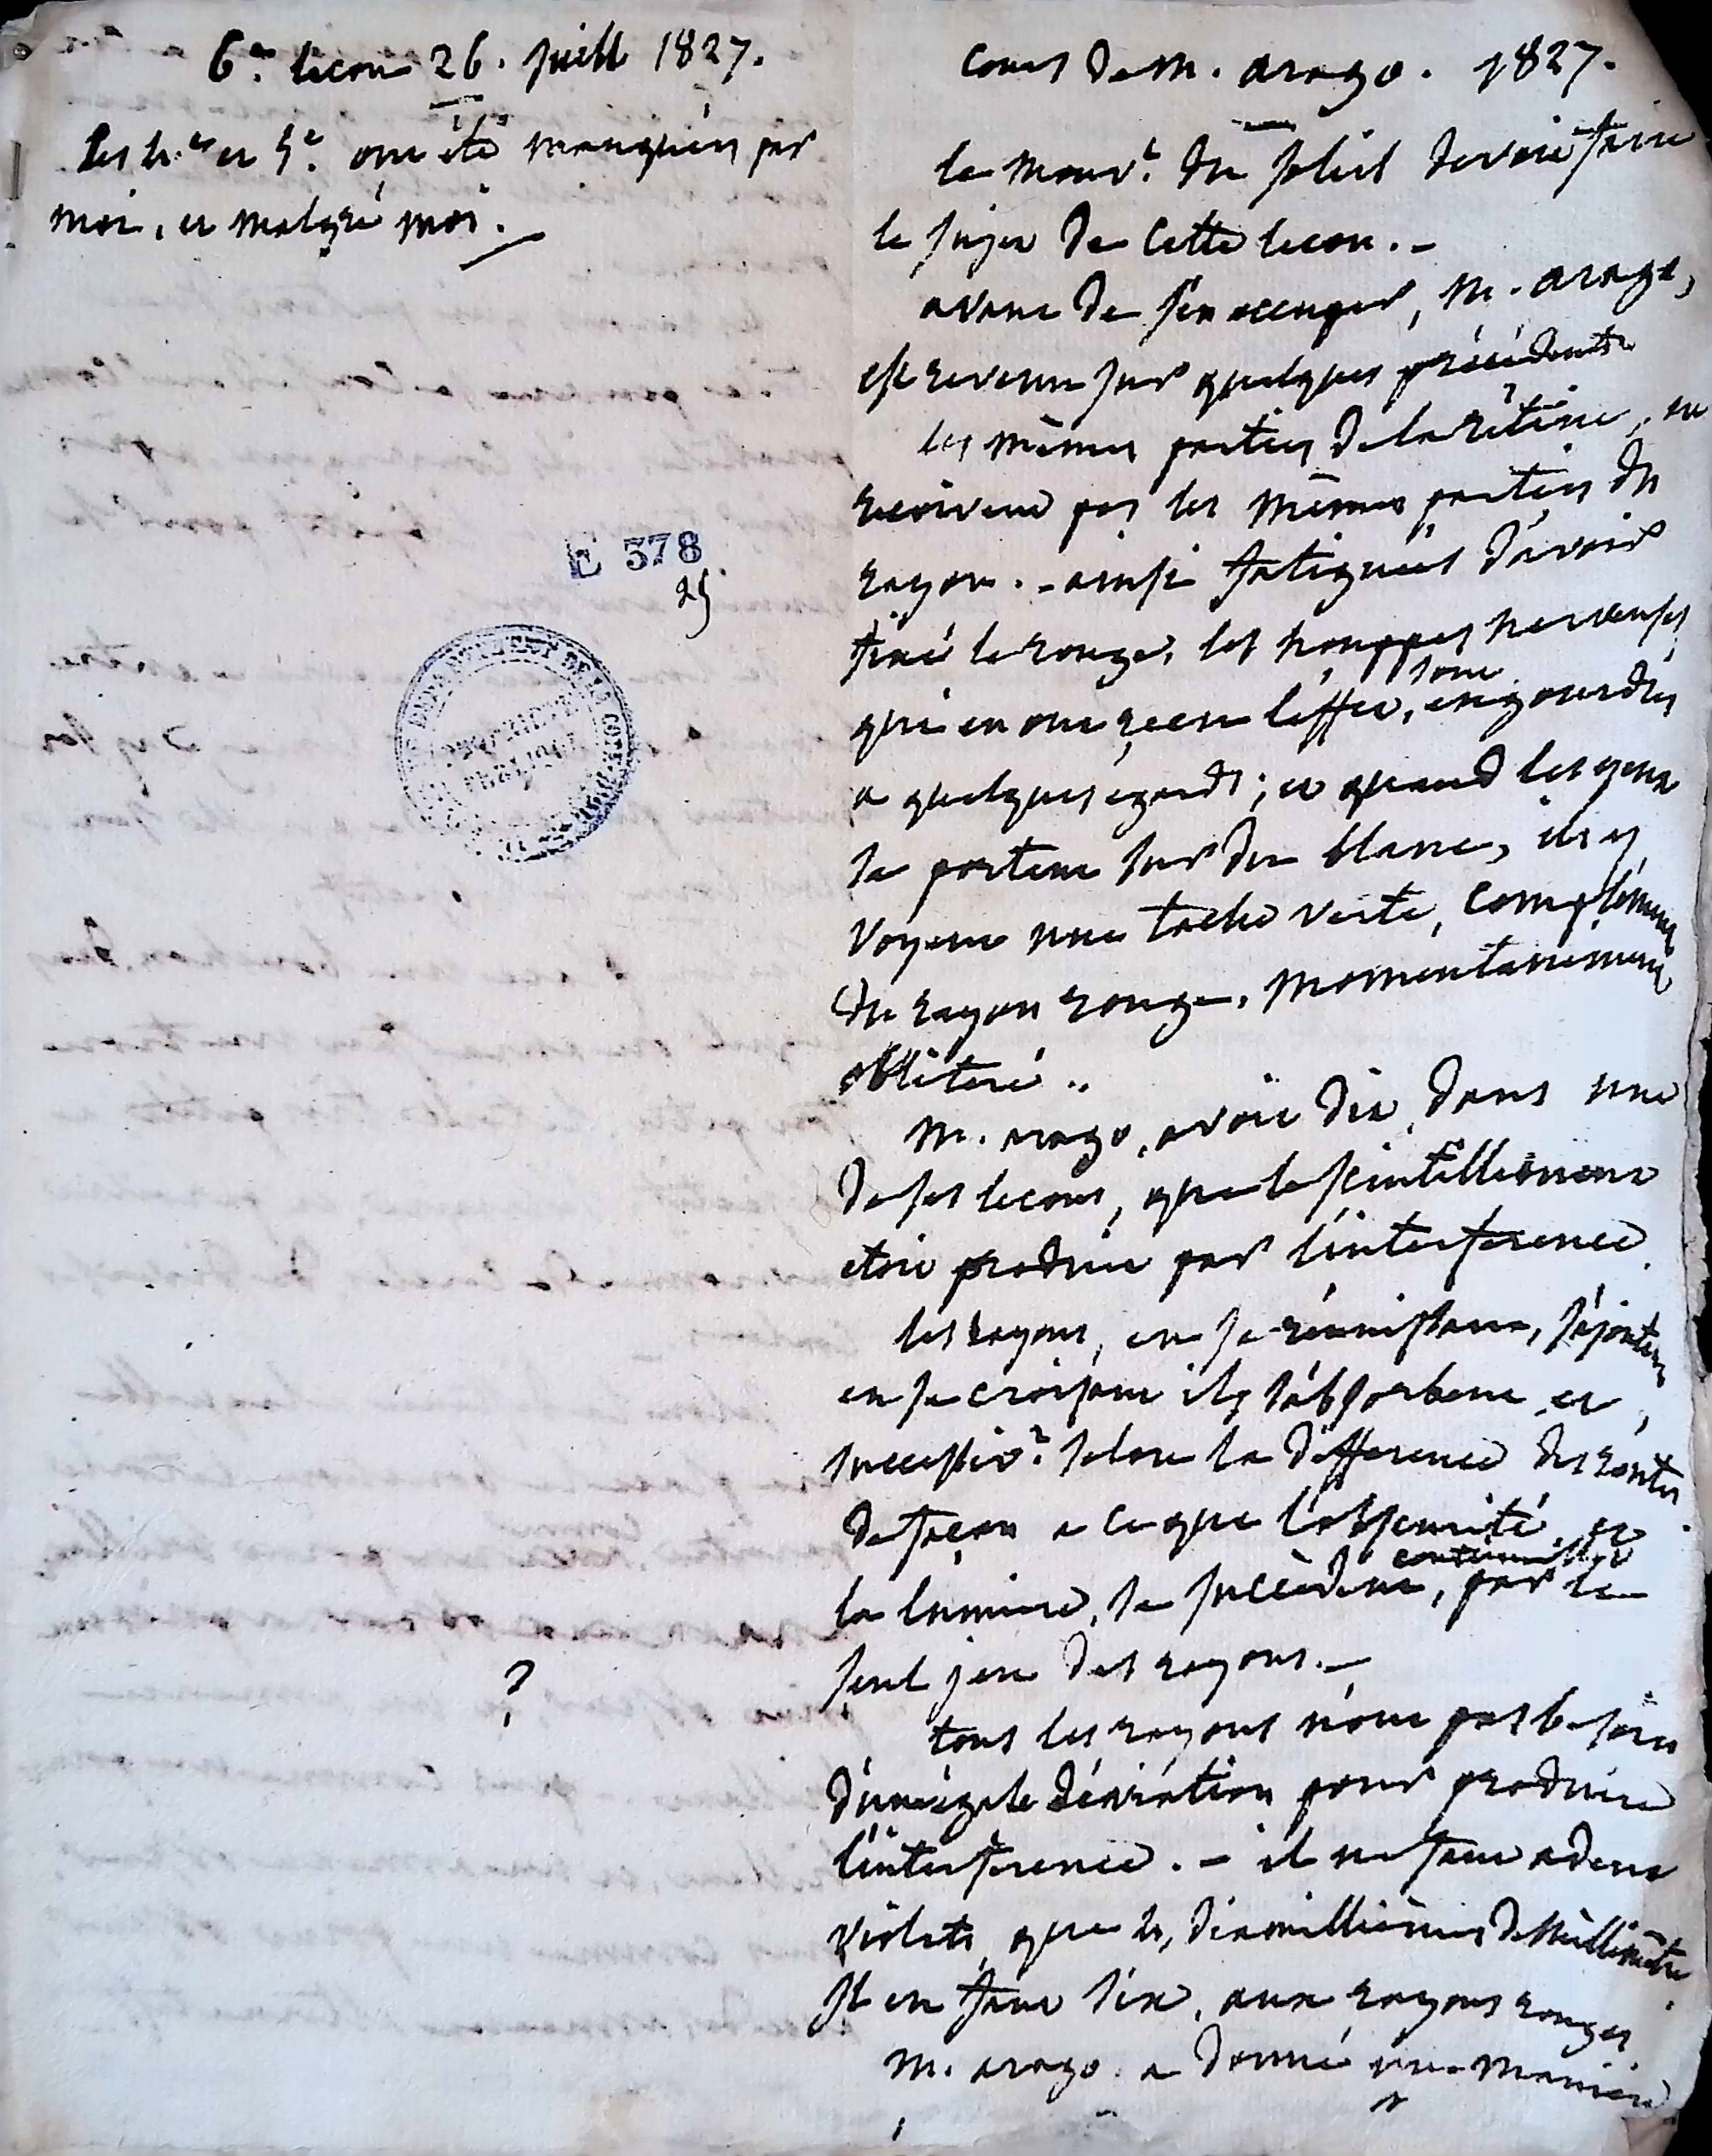 6e. lecon 26. juill 1827.
Les 4.es et 5e. ont été manquées par
moi, et malgré moi.
E 378
25
cours de M. arago. 1827.
le mouvt. du soleil devait faire
le sujet de cette lecon. -
avant de s'en occuper, M. arago,
est revenu sur quelques précédents
les mêmes parties de la rétine, ne
recoivent pas les mêmes parties du
rayon. - ainsi fatigués d'avoir
fixé le rouge, les houppes nerveuses,
qui en ont reçu l'effet, sont engourdies
a quelques egards ; et quand les yeux
se portent sur du blanc, ils y
voyent une tache verte, complément
du rayon rouge, momentanément
oblitéré ..
M. arago, avait dit, dans une
de ses lecons, que le scintillement
etoit produit par l'interference
les rayons, en se réunissant, s'ajoutent
en se croisant ils s'absorbent et,
successivt. selon la difference des routes
de façon a ce que l'obscurité, et
la lumiere, se succèdent, par le
seul jeu des rayons. -
?
tous les rayons n'ont pas besoin
d'une égale déviation pour produire
l'interference. - il ne faut a deux
violets, que 4, dix millièmes de millimètre
Il en faut six, aux rayons rouges
M. arago a donné une maniere